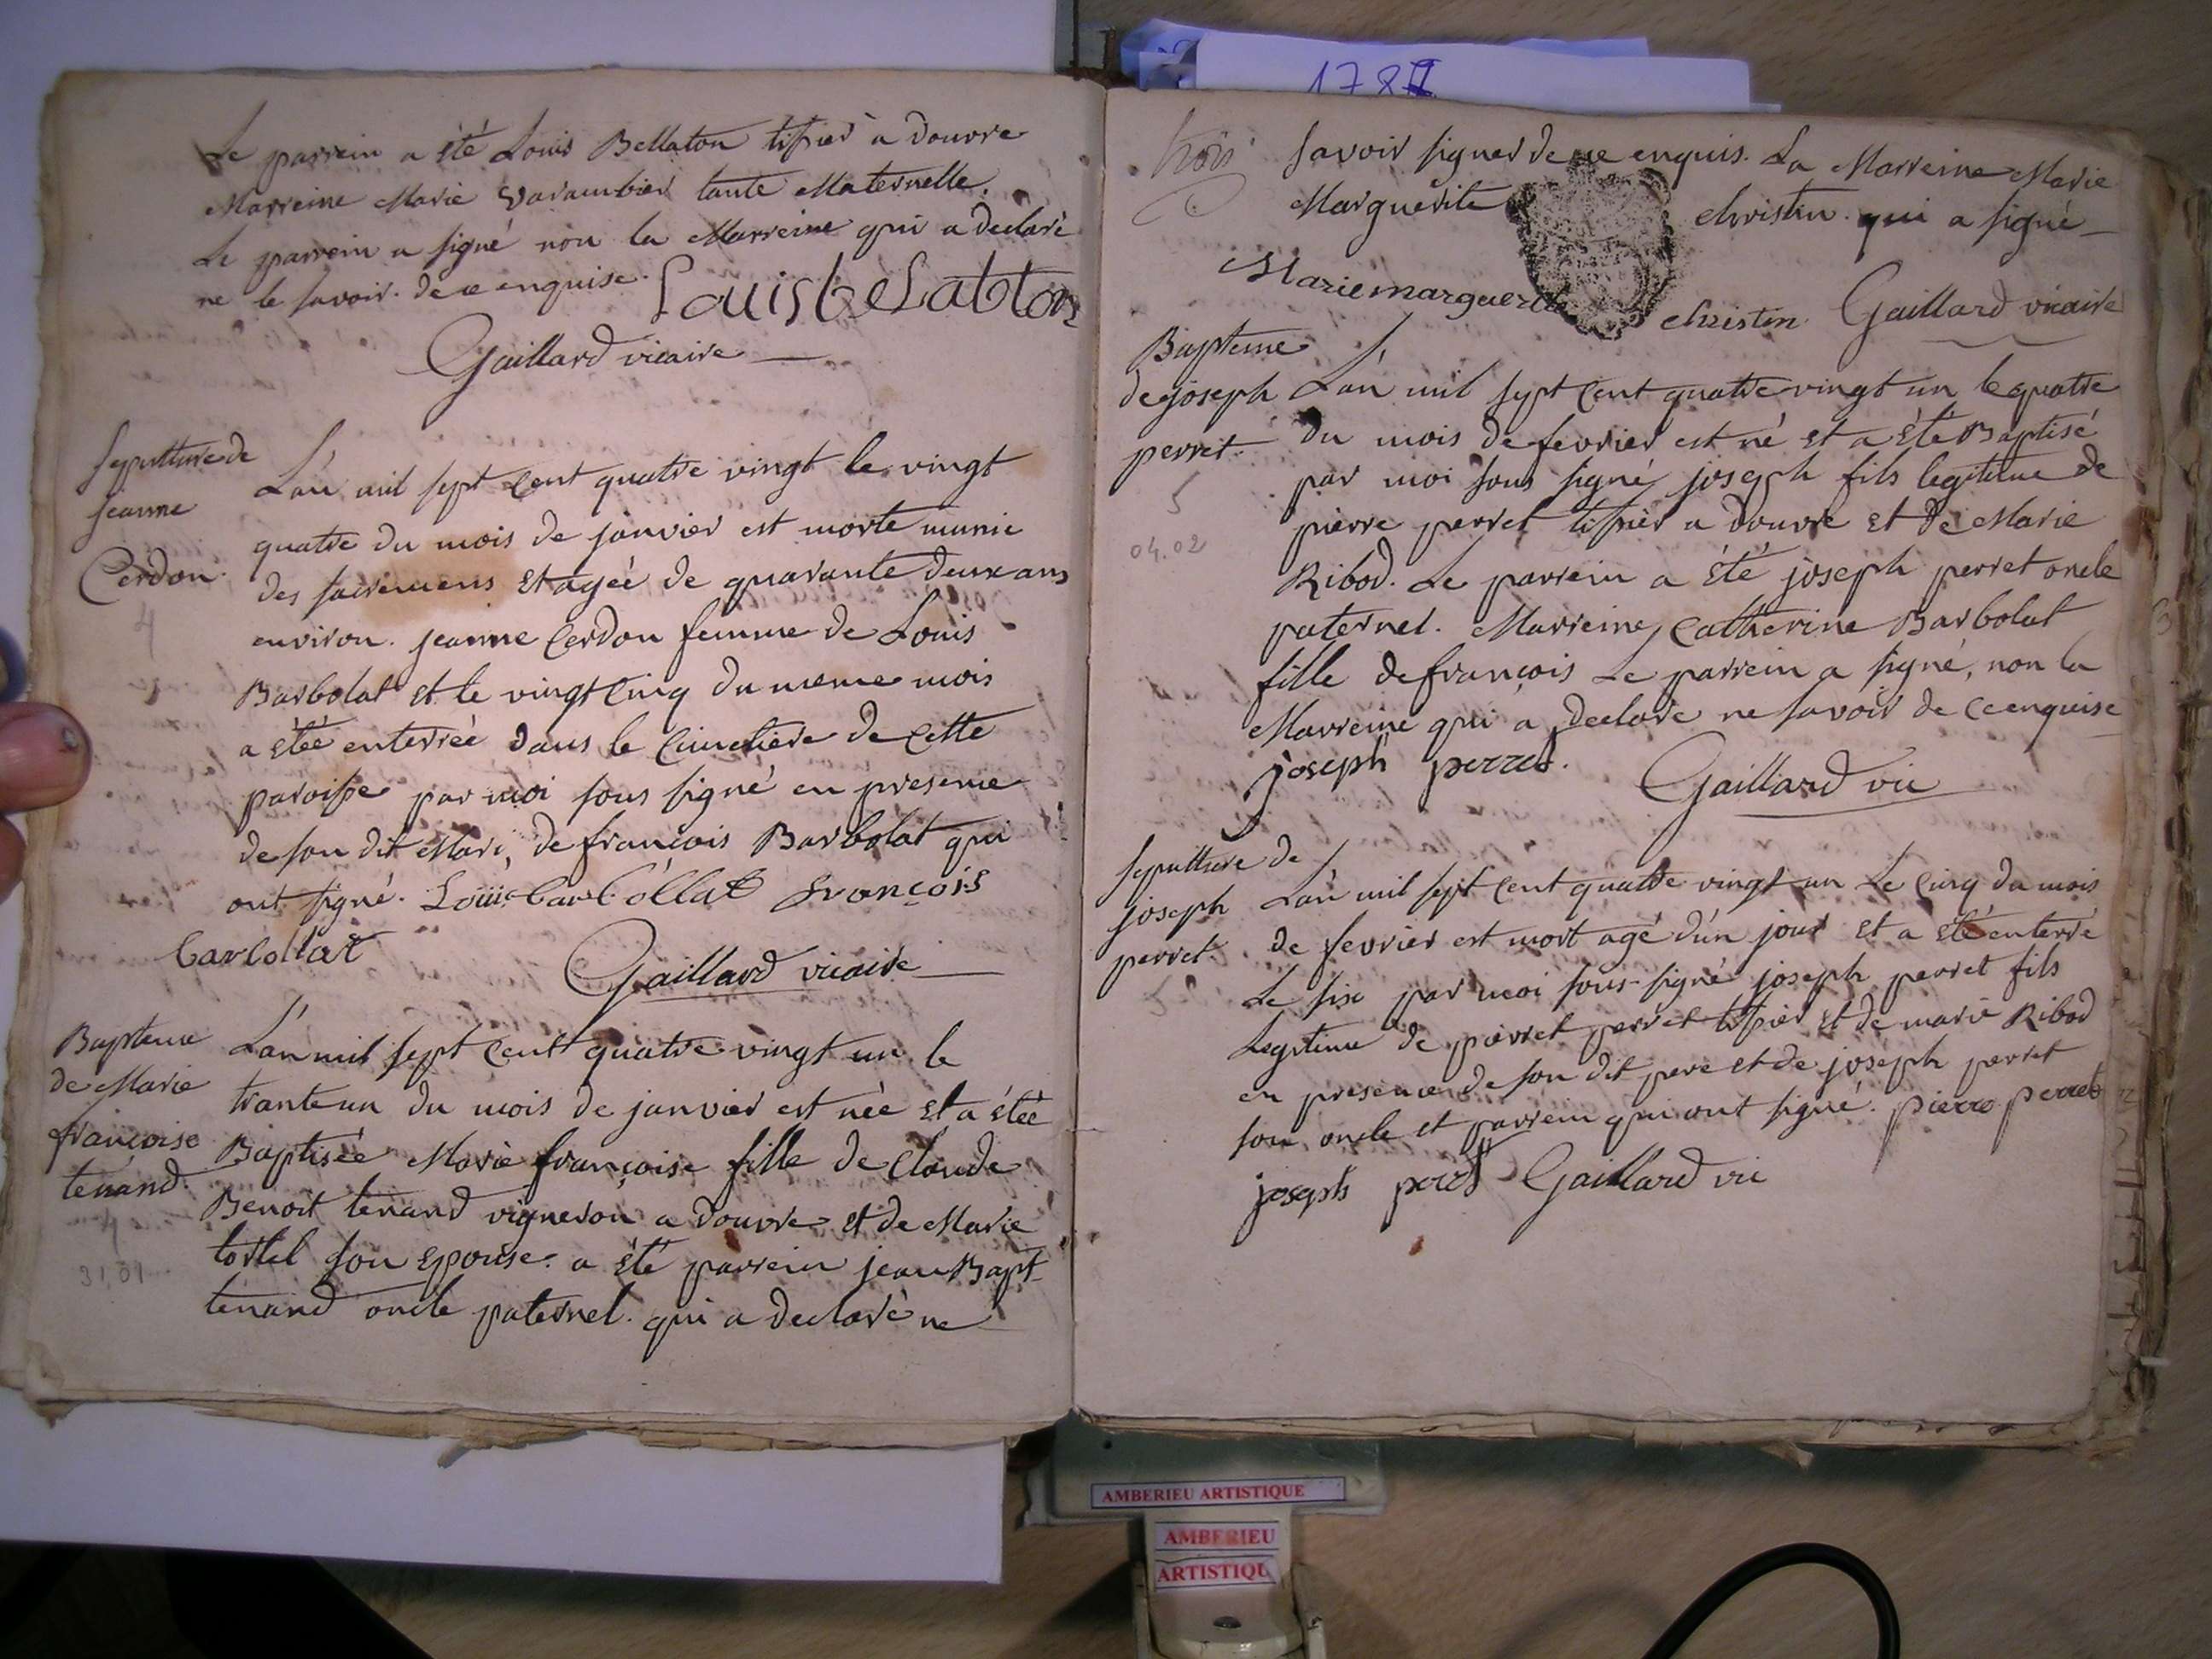 Le parrein a été Louis Bellaton tissier a douvre
Marreine Marie Varambier tante Maternelle.
Le parrein a signé non la Marreine qui a declaré
ne le savoir. de ce enquise. Louis beLabton
Gaillard vicaire
sepulture de
jeanne
Cerdon.
4
L'an mil sept cent quatre vingt le vingt
quatre du mois de janvier est morte munie
des sacremens et agée de quarante deux ans
environ. jeanne Cerdon femme de Louis
Barbolat et le vingt cinq du meme mois
a étée enterrée dans le Cimetiere de cette
paroisse par moi sous signé en presence
de son dit Mari, de françois Barbolat qui
ont signé. Loüis barbollat François
barbollat
Gaillard vicaire
Bapteme
de Marie
françoise
tenand.
31.01
L'an mil sept cent quatre vingt un le
trante un du mois de janvier est née et a étée
Baptisée Marie françoise fille de Claude
Benoit tenand vigneron a douvre et de Marie
tortel son epouse. a été parrein jean Bapt
tenand oncle paternel. qui a declaré ne
1781
trois
savoir signer de ce enquis. La Marreine Marie
Marguerite christin qui a signé
Marie marguerite christin Gaillard vicaire
Bapteme
de joseph
perret.
5
04.02
L'an mil sept cent quatre vingt un le quatre
du mois de fevrier est né et a été Baptisé
par moi sous signé joseph fils legitime de
pierre perret tissier a douvre et de Marie
Ribod. Le parrein a été joseph perret oncle
paternel. Marreine Catherine Barbolat
fille de françois Le parrein a signé, non la
Marreine qui a declaré ne savoir de ce enquise
joseph perret.
Gaillard vic
sepulture de
joseph
perret.
L'an mil sept cent quatre vingt un Le cinq du mois
de fevrier est mort agé d'un jour et a été enterré
Le six par moi sous-signé joseph perret fils
Legitime de pierret perret tissier et de marie Ribod
en presence de son dit pere et de joseph perret
son oncle et parrein qui ont signé. pierre perret
joseph perret Gaillard vic
AMBERIEU ARTISTIQUE
AMBERIEU
ARTISTIQU